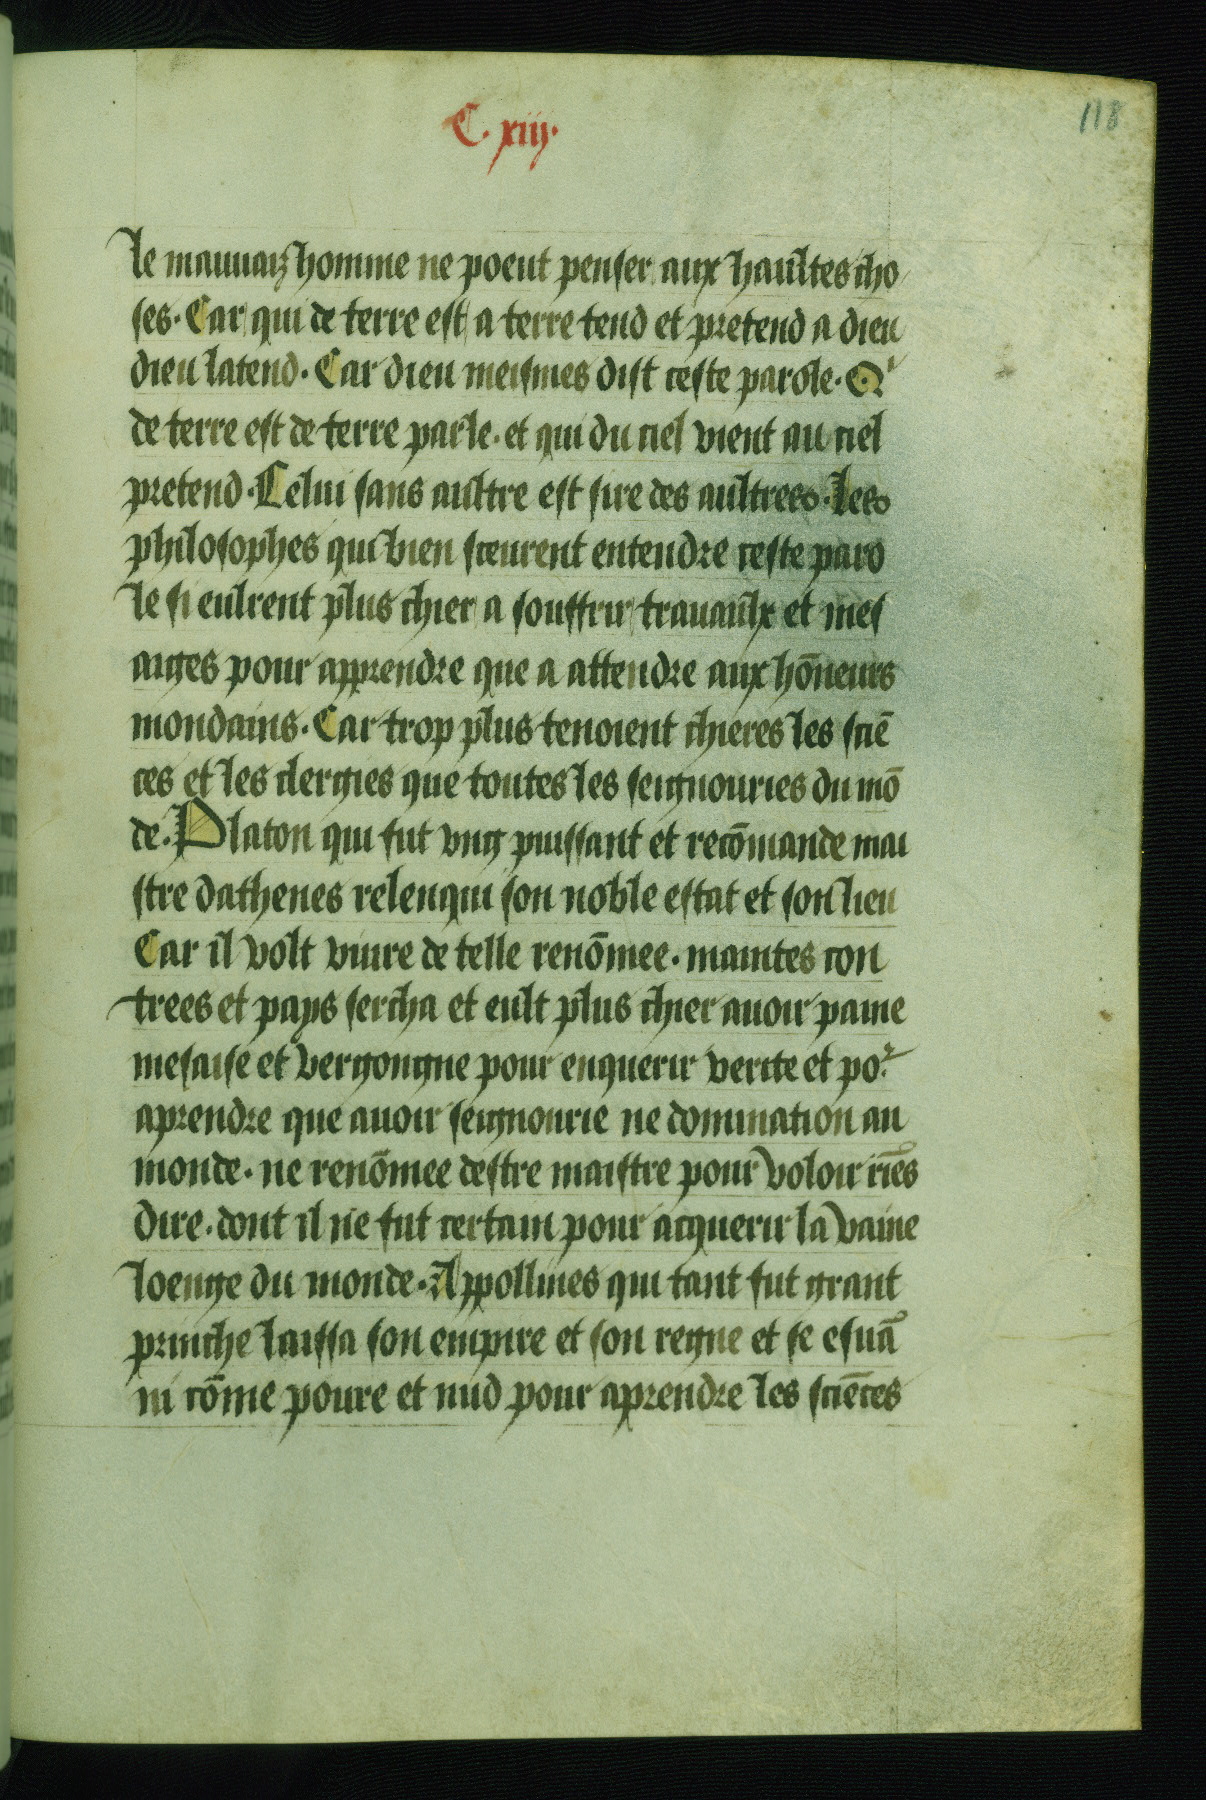 C. xiij.
118
le mauuaiz homme ne poeut penser aux haultes cho
ses. Car qui de terre est a terre tend et pretend a dieu
dieu latend. Car dieu meismes dist ceste parole. Qⁱ
de terre est de terre parle. et qui du ciel vient au ciel
pretend. Celui sans aultre est sire des aultres. Les
philosophes qui bien sceurent entendre ceste paro
le si eulrent plus chier a souffrir trauaulx et mes
aiges pour apprendre que a attendre aux hōneurs
mondains. Car trop plus tenoient chieres les sciē
ces et les clergies que toutes les seignouries du mō
de. Platon qui fut vng puissant et recōmande mai
stre dathenes relenqui son noble estat et son lieu
Car il volt viure de telle renōmee. maintes con
trees et pays sercha et eult plus chier auoir paine
mesaise et vergongne pour enquerir verite et poʳ
aprendre que auoir seignourie ne domination au
monde. ne renōmee destre maistre pour voloir riēs
dire. dont il ne fut certain pour acquerir la vaine
loenge du monde. Appollines qui tant fut grant
prinche laissa son empire et son regne et se esuā
ni cōme poure et nud pour aprendre les sciēces